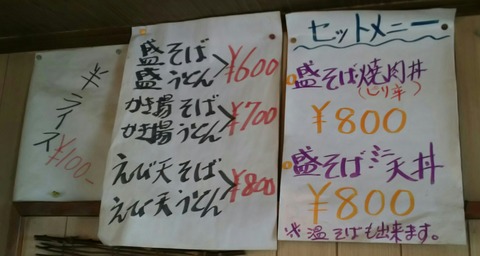 半ライス
¥100-
盛そば
盛うどん
¥600
かき揚そば
かき揚うどん
¥700
えび天そば
えび天うどん
¥800
セットメニー
盛そば焼肉丼
(ピリ辛)
¥800
盛そばミニ天丼
¥800
※温そばも出来ます。